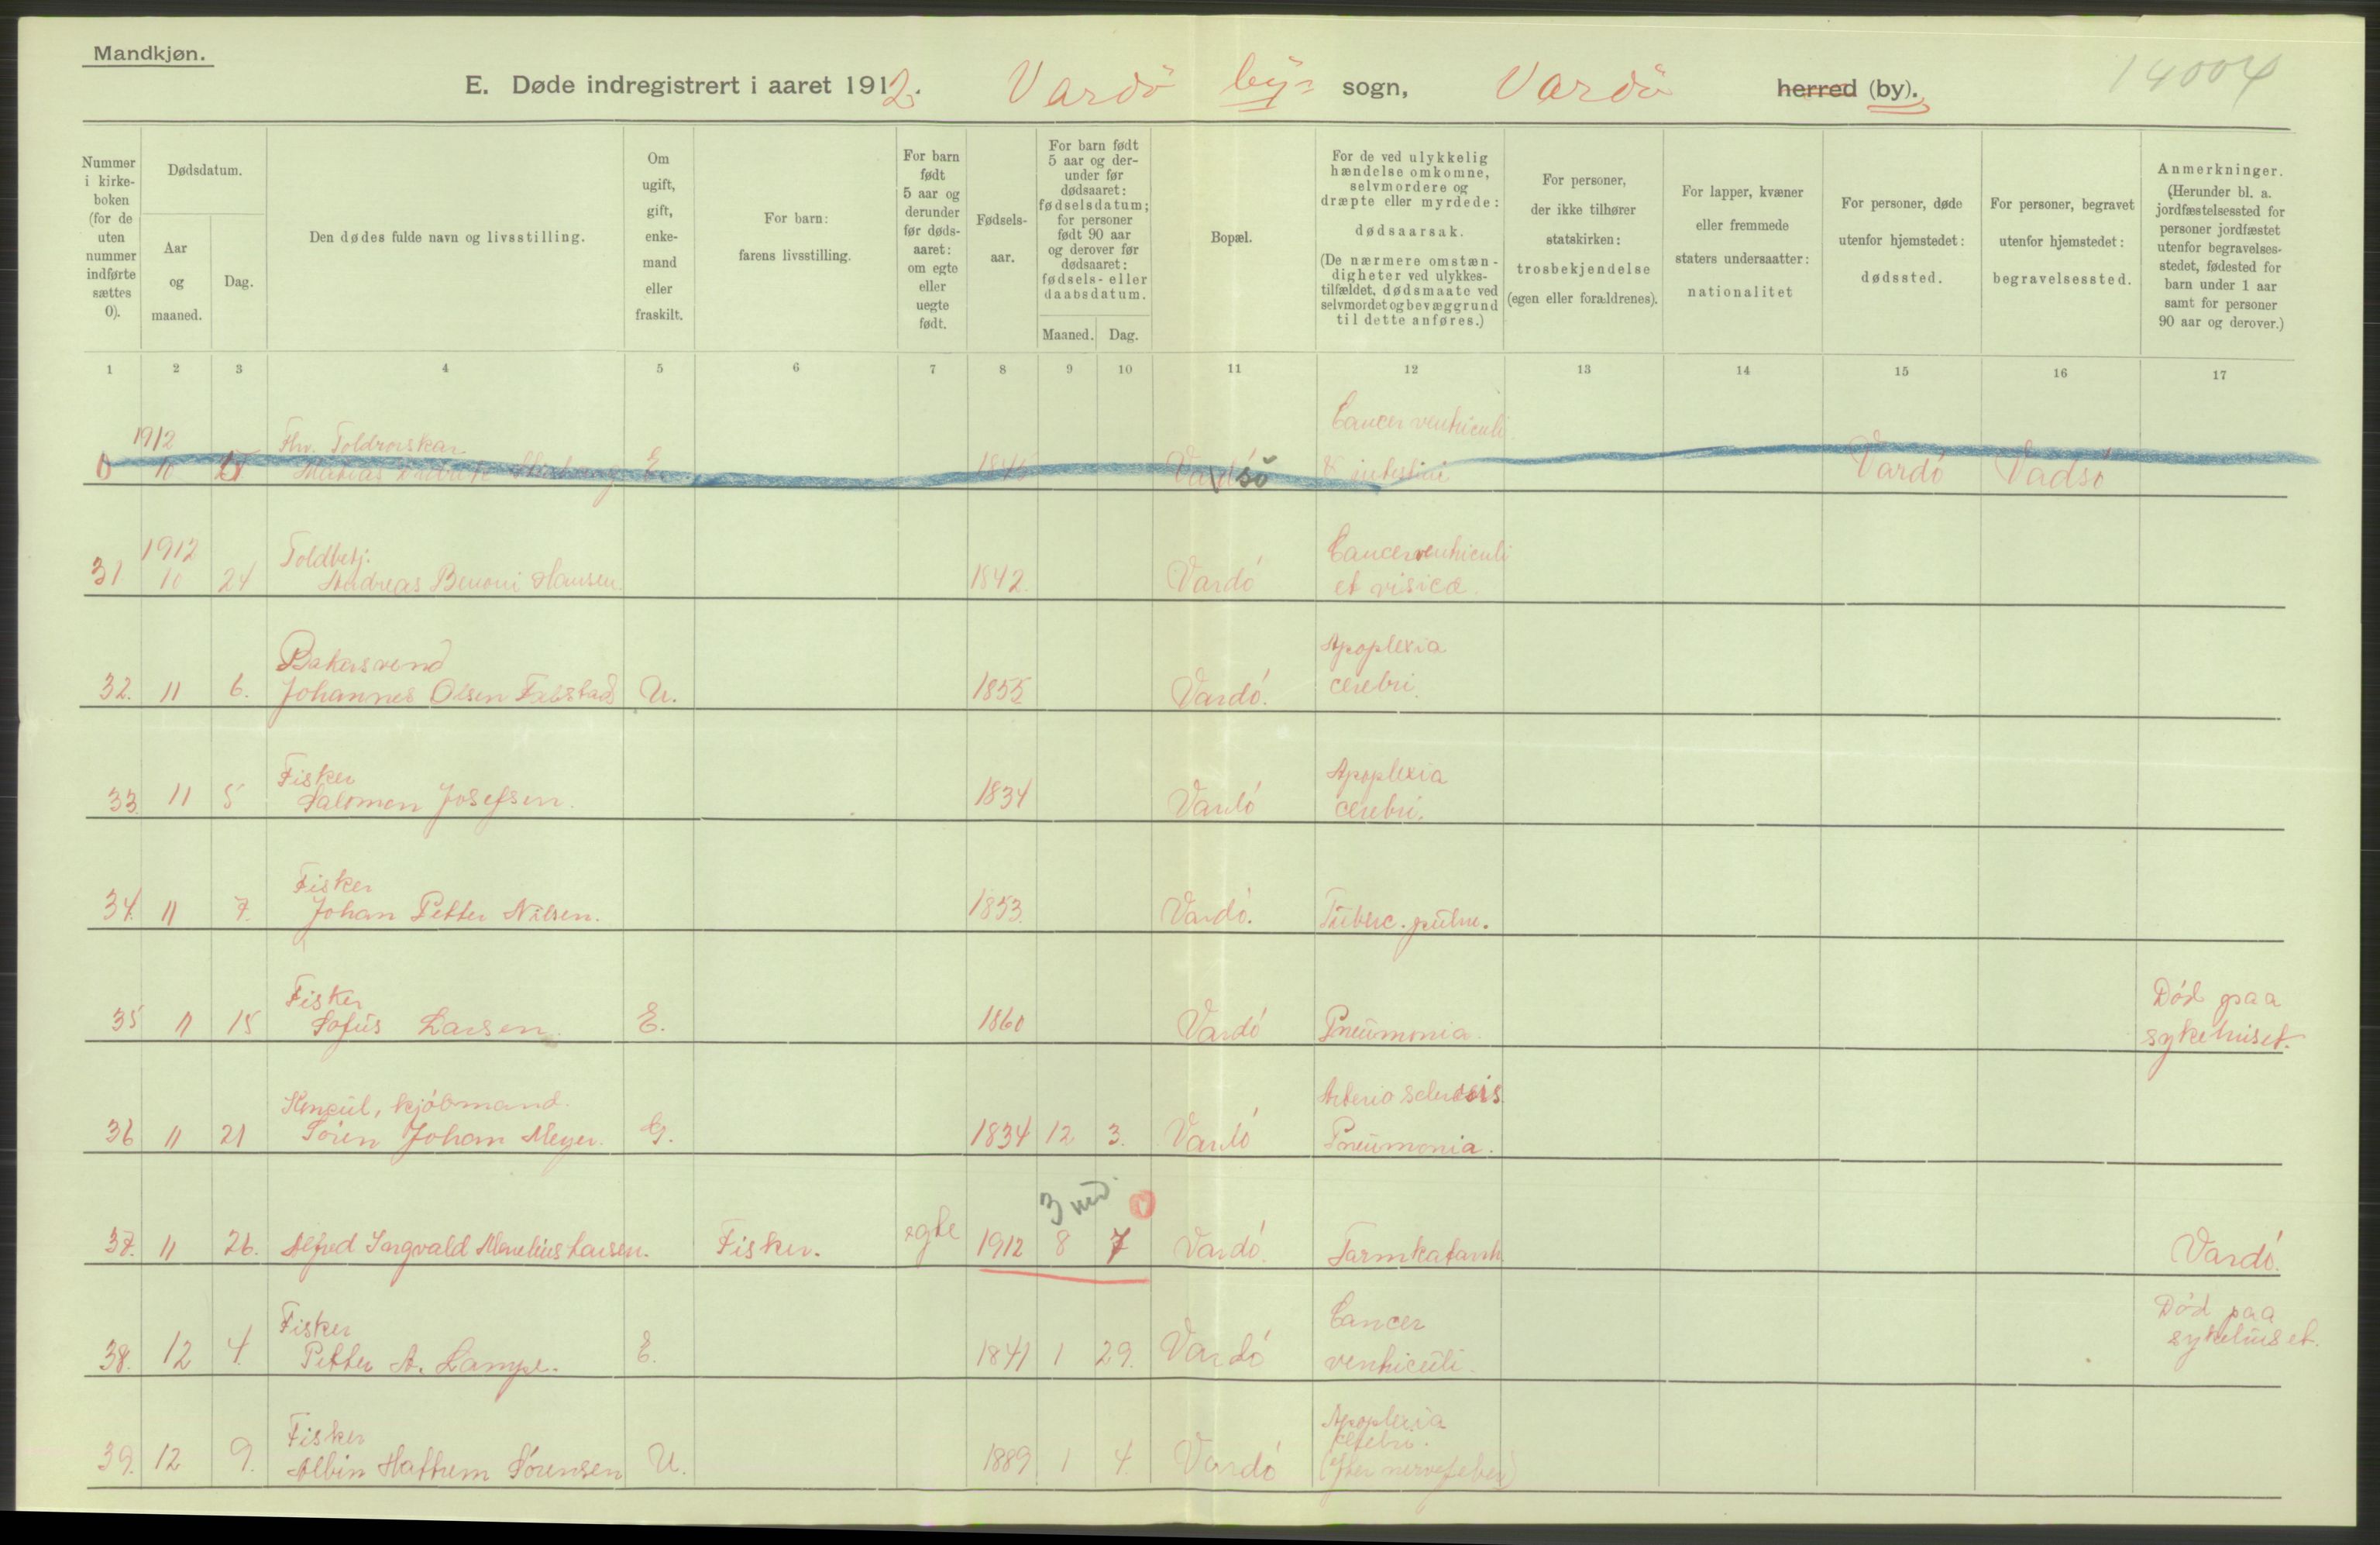 Mandkjøn.
E. Døde indregistrert i aaret 1912. Vardö by= sogn, Vardö herred (by).
14004
Nummer i kirke- boken (for de uten nummer indførte sættes 0).
Dødsdatum.
Aar og maaned.
Dag.
Den dødes fulde navn og livsstilling.
Om ugift, gift, enke- mand eller fraskilt.
For barn: farens livsstilling.
For barn født 5 aar og derunder før døds- aaret: om egte eller uegte født.
Fødsels- aar.
For barn født 5 aar og der- under før dødsaaret: fødselsdatum; for personer født 90 aar og derover før dødsaaret: fødsels- eller daabsdatum.
Maaned. Dag.
Bopæl.
For de ved ulykkelig hændelse omkomne, selvmordere og dræpte eller myrdede: dødsaarsak. (De nærmere omstæn- digheter ved ulykkes- tilfældet, dødsmaate ved selvmordet og bevæggrund til dette anføres.)
For personer, der ikke tilhører statskirken: trosbekjendelse (egen eller forældrenes).
For lapper, kvæner eller fremmede staters undersaatter: nationalitet
For personer, døde utenfor hjemstedet: dødssted.
For personer, begravet utenfor hjemstedet: begravelsessted.
Anmerkninger. (Herunder bl. a. jordfæstelsessted for personer jordfæstet utenfor begravelses- stedet, fødested for barn under 1 aar samt for personer 90 aar og derover.)
1 2 3 4 5 6 7 8 9 10 11 12 13 14 15 16 17
1912 Fhv. Cancer ventriculi
0 10 E. Vadsö & intestini Vardó Vadsó
1912 Toldbetj. Cancer ventriculi
31 10 24 Andreas Benoni Hansen. 1842. Vardó et visica.
Bakersvend Apoplexia
32. 11 6. Johannes Olsen Falstad U. 1855 Vardó. cerebri.
Fisker Apoplexia
33. 11 5 Salomon Josefsen. 1834 Vardó cerebri.
Fisker
34. 11 7. Johan Petter Nilsen. 1853. Vardó. Tuberc. pulm.
Fisker Död paa
35 11 15 Sofus Larsen. E. 1860 Vardó Pneumonia. sykehuset.
Konsul, kjóbmand. Arterio sclerosis
36 11 21 Sören Johan Meyer. G. 1834 12 3. Vardó Pneumonia.
3 md
37. 11 26. Alfred Ingvald Larsen. Fisker. egte 1912 8 7 Vardó. Tarmkatarrh Vardó.
Fisker Cancer Död paa
38. 12 4. Petter A. Lampe. E. 1841 1 29. Vardó ventriculi. sykehuset.
Fisker Apoplexia cerebri.
39. 12 9. Albin Hattrem Sörensen U. 1889 1 4. Vardó (efter nervefeber)